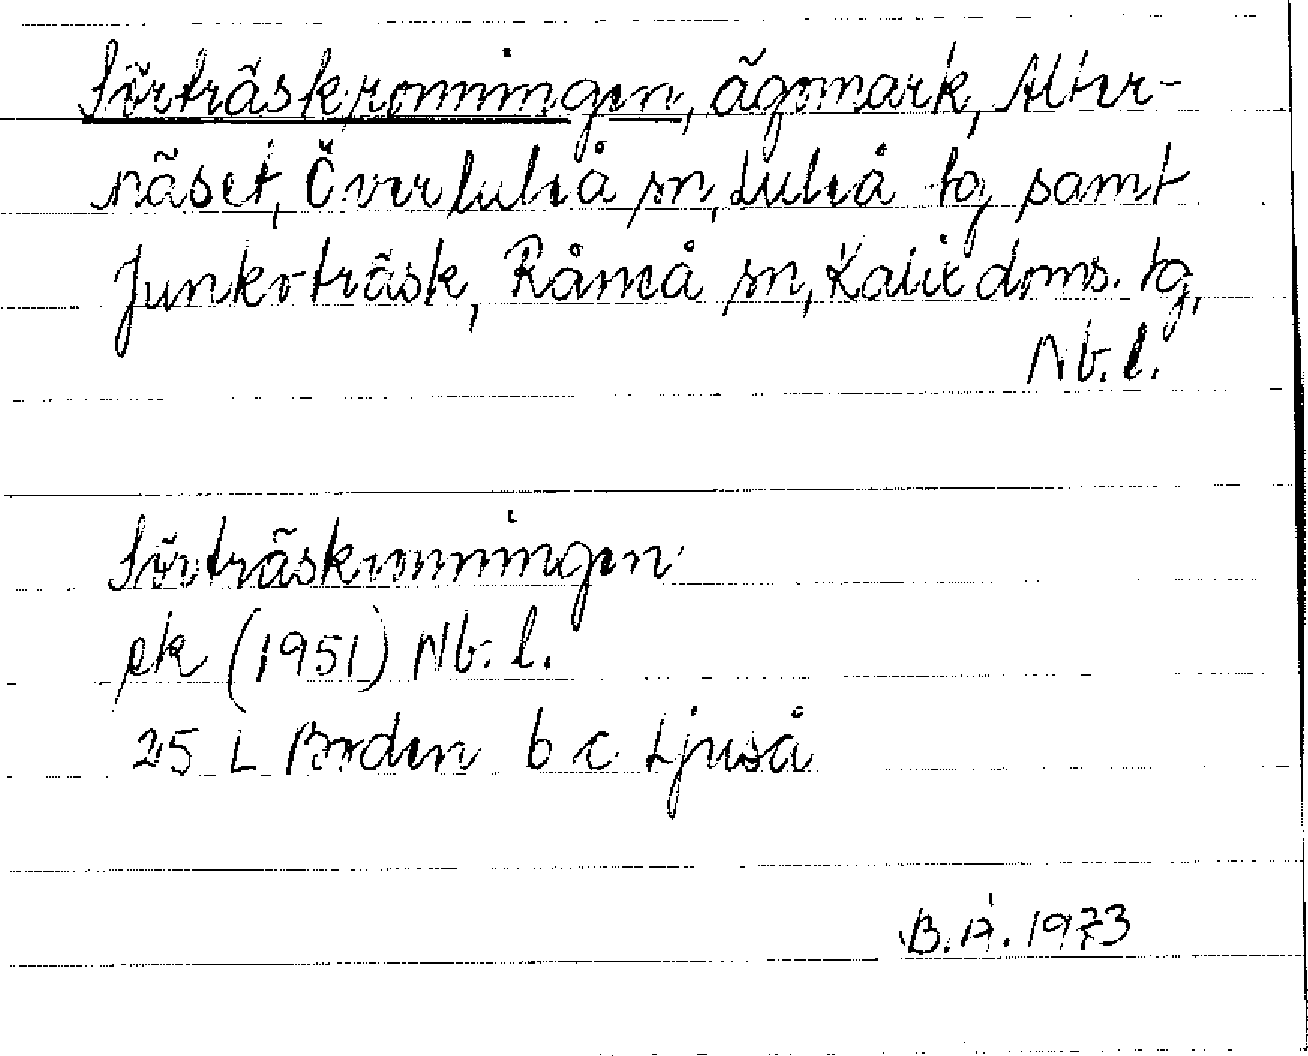 Sörträskronningen, ägomark, Alter-
näset, Överluleå sn, Luleå tg samt
Junkoträsk, Råneå sn, Kalix doms. tg,
Nb. l.
Sörträskronningen
ek (1951) Nb. l.
25 L Boden b c Ljuså
B.Å. 1973